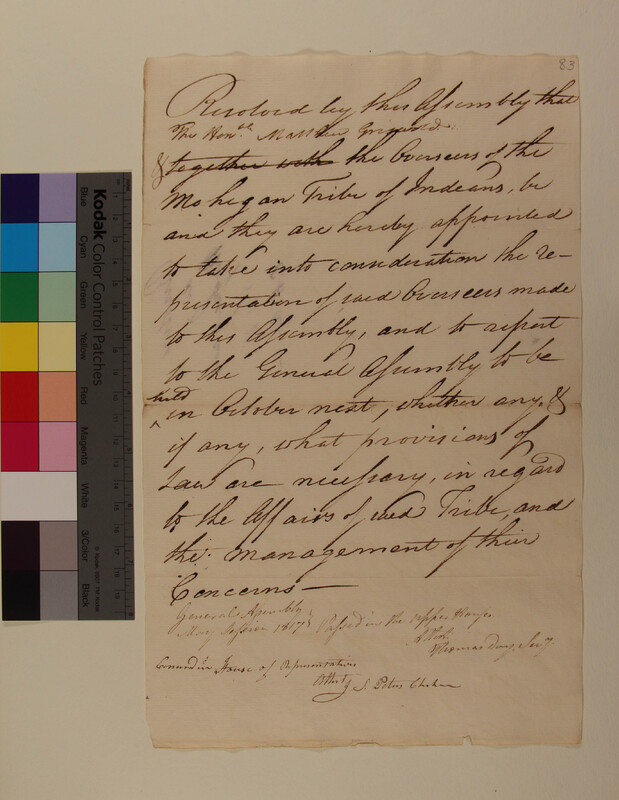 83
Resolved by this Assembly that
The Hon.ble Matthew Griswold
& together with the Overseers of the
Mohegan Tribe of Indeans, be
and they are hereby appointed
to take into consideration the re-
presentation of said Overseers made
to this Assembly, and to report
to the General Assembly to be
held
^ in October next, whether any, &
if any, what provisions of
Law are necessary, in regard
to the Affairs of said Tribe, and
the management of their
Concerns—
General Assembly
May Session 1817 } Passed in the upper House
Attest
Thomas Day, Secy.
Concurred in House of Representatives
Attest J. S. Peters Clerk
Kodak Color Control Patches
Blue
Cyan
Green
Yellow
Red
Magenta
White
3/Color
Black